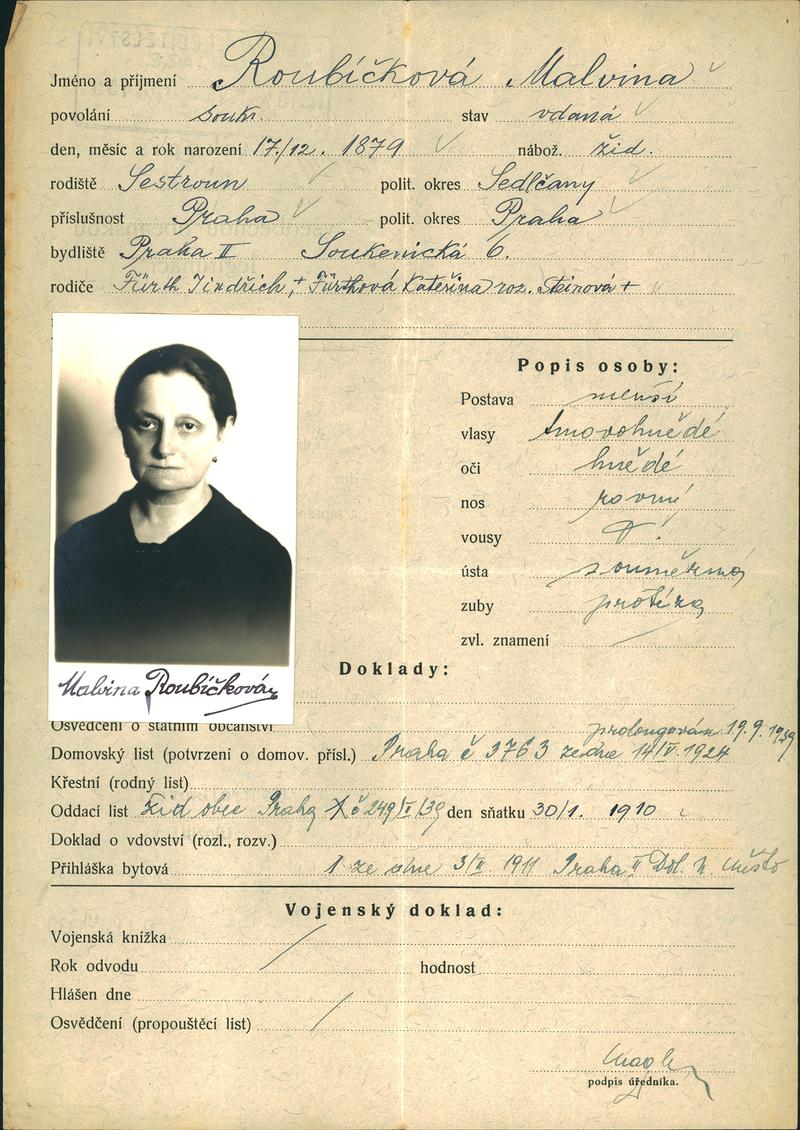 Jméno a příjmení Roubíčková Malvina
povolání soukr. stav vdaná
den, měsíc a rok narození 17./12. 1879 nábož. žid.
rodiště Sestroun polit. okres Sedlčany
příslušnost Praha polit. okres Praha
bydliště Praha II Soukenická 6.
rodiče Fürth Jindřich, + Fürthová Kateřina roz. Steinová +
Popis osoby:
Postava menší
vlasy tmavohnědé
oči hnědé
nos rovný
vousy
ústa souměrná
zuby protéza
zvl. znamení
Malvina Roubíčková
Doklady:
Osvědčení o státním občanství
prolongován 19.9.1939
Domovský list (potvrzení o domov. přísl.) Praha č 3763 ze dne 14/IV.1924
Křestní (rodný list)
Oddací list Žid obec Praha č 249/I/39 den sňatku 30/1. 1910
Doklad o vdovství (rozl., rozv.)
Přihláška bytová 1 ze dne 3/II 1911 Praha II Dol. N. Město
Vojenský doklad:
Vojenská knížka
Rok odvodu hodnost
Hlášen dne
Osvědčení (propouštěcí list)
podpis úředníka.